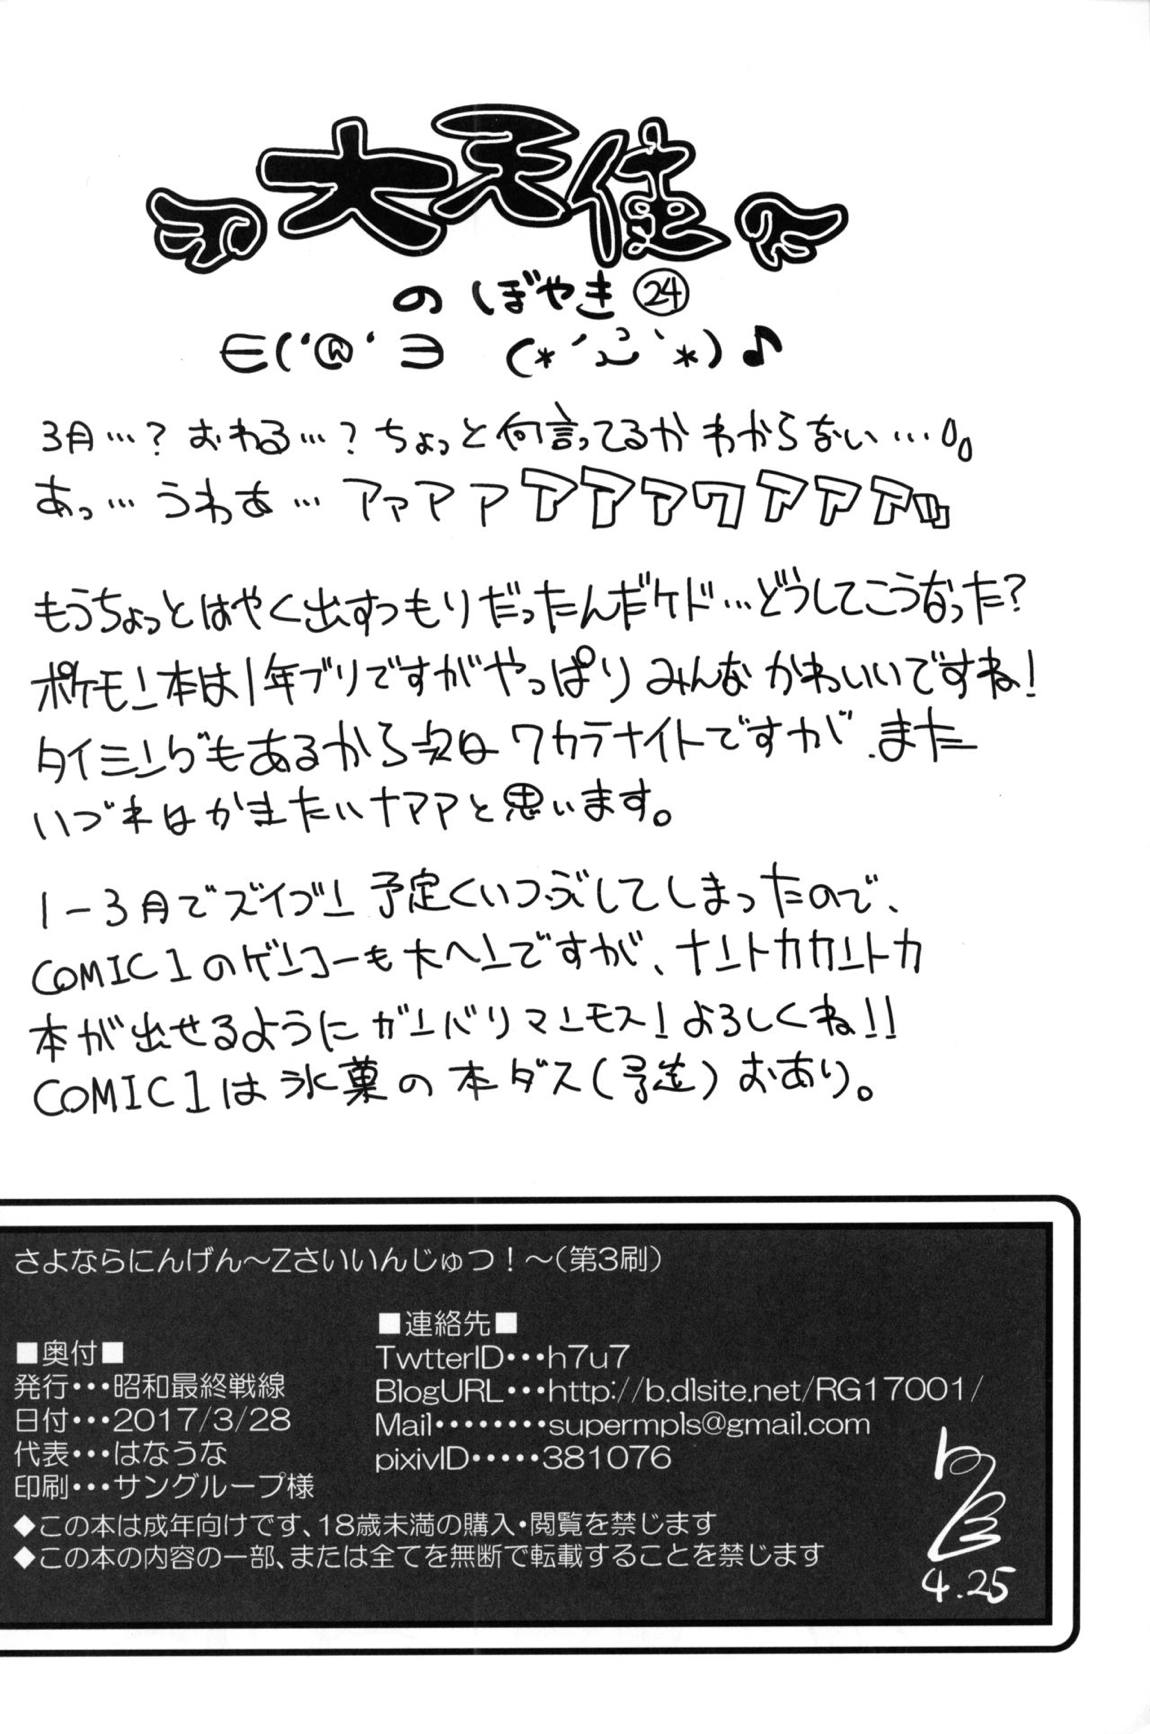 大天使
のぼやき㉔
∈('@'∋ (*´ت`*)♪
3月…?おわる…?ちょっと何言ってるかわからない…
あっ…うわあ…アァアァアアアワアアアッ
もうちょっとはやく出すつもりだったんだケド…どうしてこうなった?
ポケモン本は1年ブリですがやっぱりみんなかわいいですね!
タイミングもあるから次はワカラナイトですが、また
いづれはかきたいナアアと思います。
1-3月でズイブン予定くいつぶしてしまったので、
COMIC1のゲンコーも大ヘンですが、ナントカカントカ
本が出せるようにガンバリマンモス!よろしくね!!
COMIC1は氷菓の本ダス(予定)おわり。
さよならにんげん～Zさいいんじゅつ！～(第3刷)
■奥付■
発行・・・昭和最終戦線
日付・・・2017/3/28
代表・・・はなうな
印刷・・・サングループ様
■連絡先■
TwtterID・・・h7u7
BlogURL・・・http://b.dlsite.net/RG17001/
Mail・・・・・・・・supermpls@gmail.com
pixivID・・・・・381076
◆この本は成年向けです、18歳未満の購入・閲覧を禁じます
◆この本の内容の一部、または全てを無断で転載することを禁じます
4.25